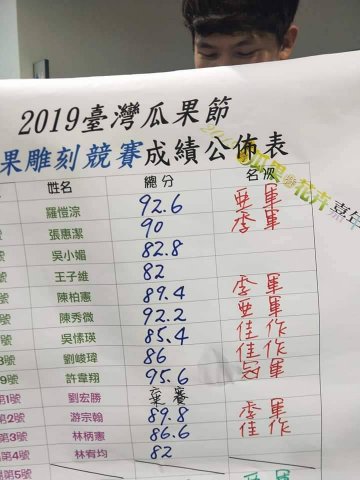 2019臺灣瓜果節
果雕刻競賽成績公佈表
姓名 總分 名次
羅愷淙 92.6 亞軍
號 張惠潔 90 季軍
號 吳小媚 82.8
號 王子維 82
號 陳柏憲 89.4 季軍
號 陳秀微 92.2 亞軍
號 吳愫瑛 85.4 佳作
號 劉峻瑋 86 佳作
9號 許韋翔 95.6 冠軍
第1號 劉宏勝 棄賽
第2號 游宗翰 89.8 季軍
第3號 林柄憲 86.6 佳作
第4號 林宥均 82
第5號